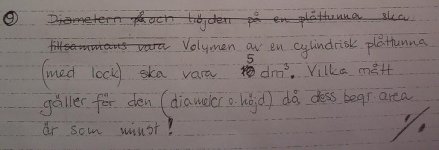 ⑨ Diametern på och höjden på en plåttunna ska
tillsammans vara Volymen av en cylindrisk plåttunna
(med lock) ska vara 5 dm³. Vilka mått
gäller för den (diameter o. höjd) då dess begr. area
är som minst!